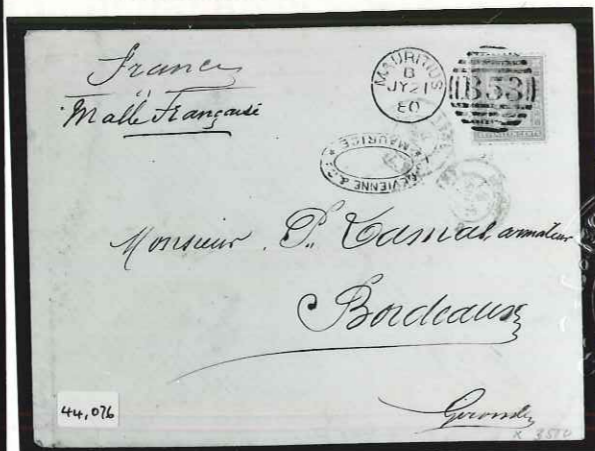 France
Malle Française
MAURITIUS
B
JY 21
80
B53
MAURICE
Monsieur P. armateur
Bordeaux
Gironde
44,076